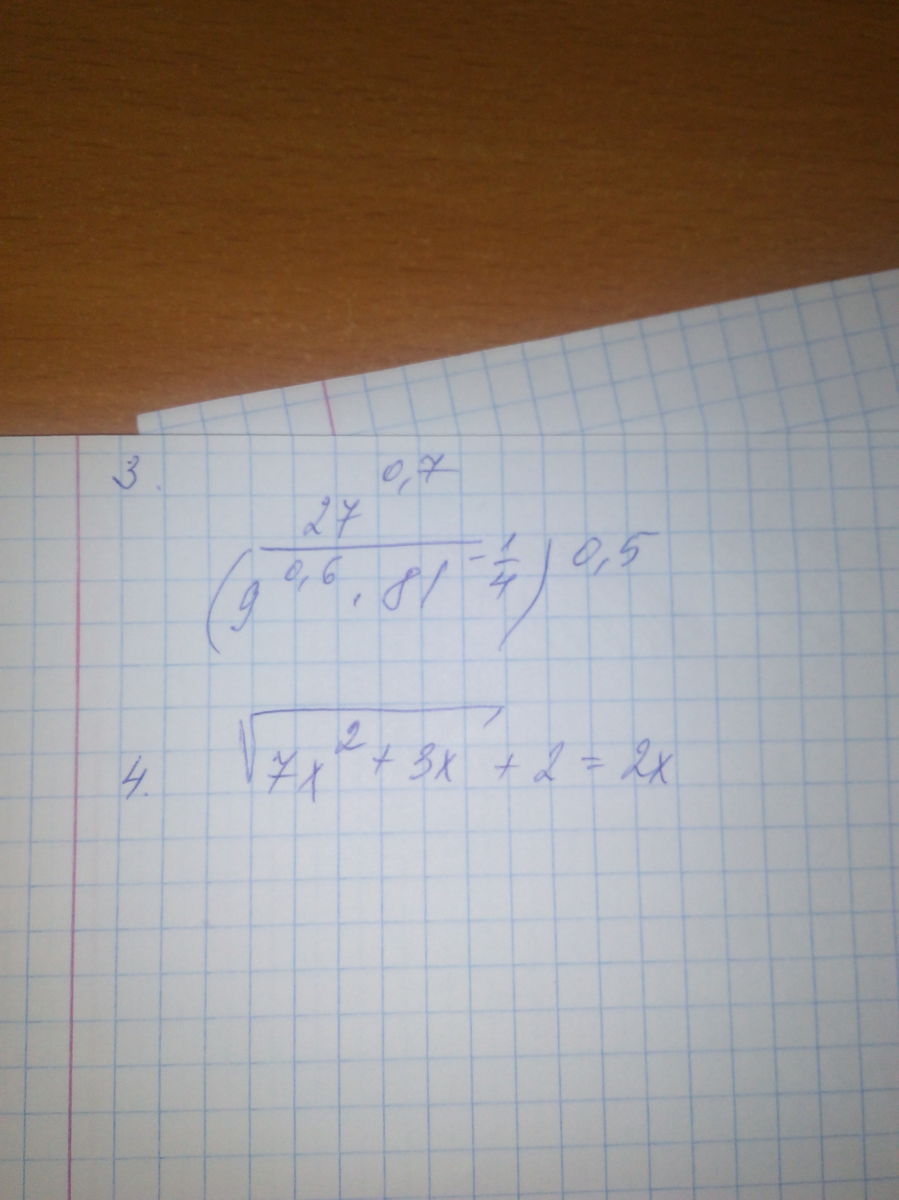 3.
27^0,7
(9^0,6 · 81^-1/4)^0,5
4. √7x²+3x + 2 = 2x